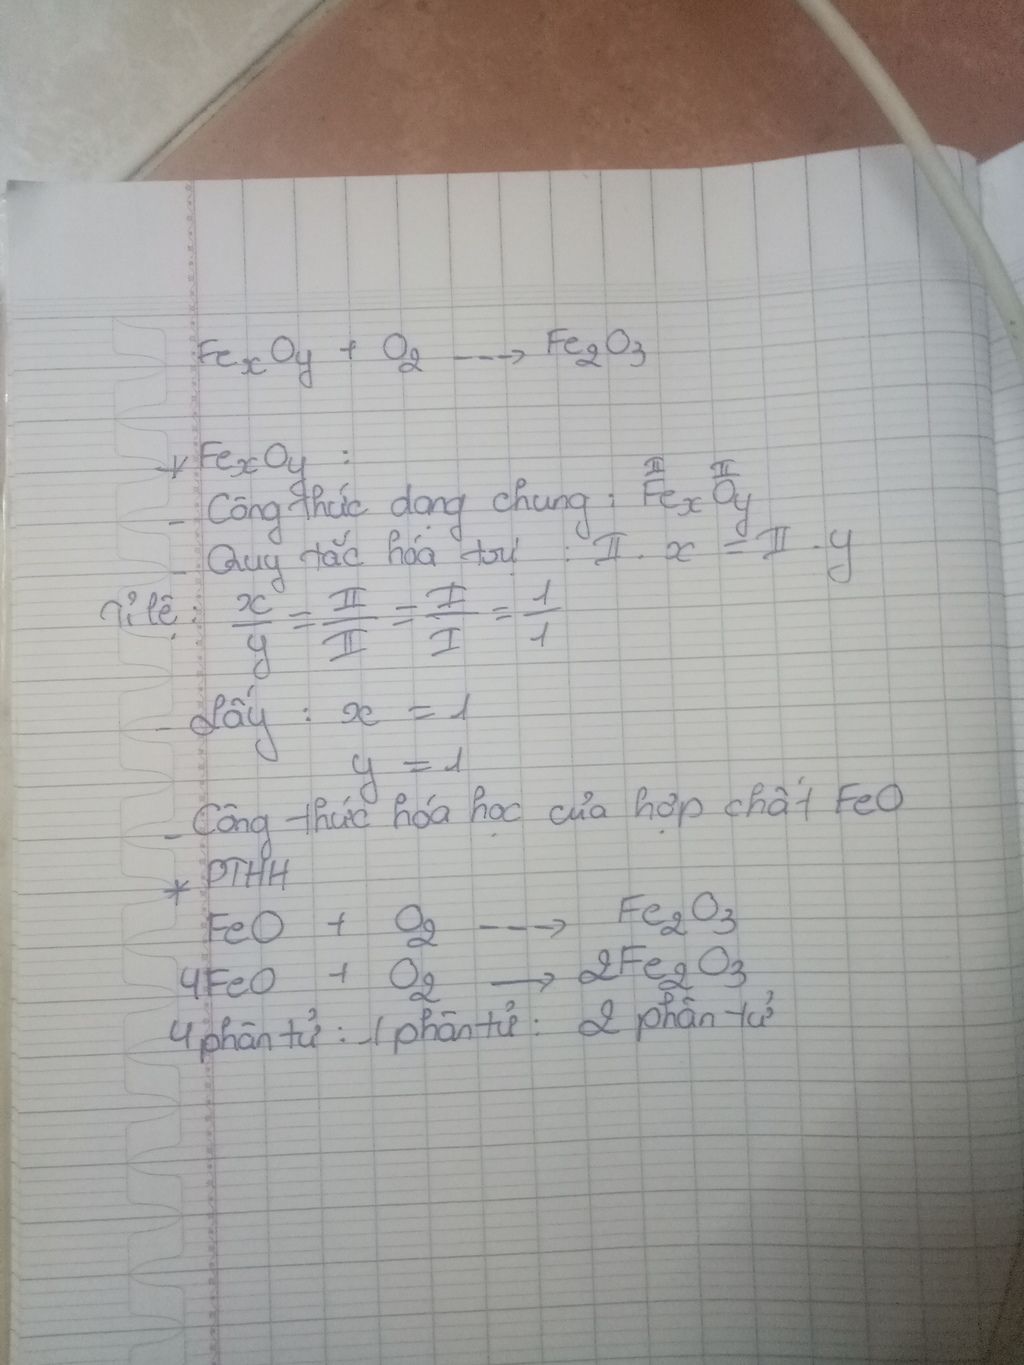 FexOy + O2 ---> Fe2O3
* FexOy :
- Công thức dạng chung : Fe^II x O^II y
- Quy tắc hóa trị : II . x = II . y
Tỉ lệ : x/y = II/II = I/I = 1/1
- Lấy : x = 1
y = 1
- Công thức hóa học của hợp chất FeO
* PTHH
FeO + O2 ---> Fe2O3
4FeO + O2 —> 2Fe2O3
4 phân tử : 1 phân tử : 2 phân tử